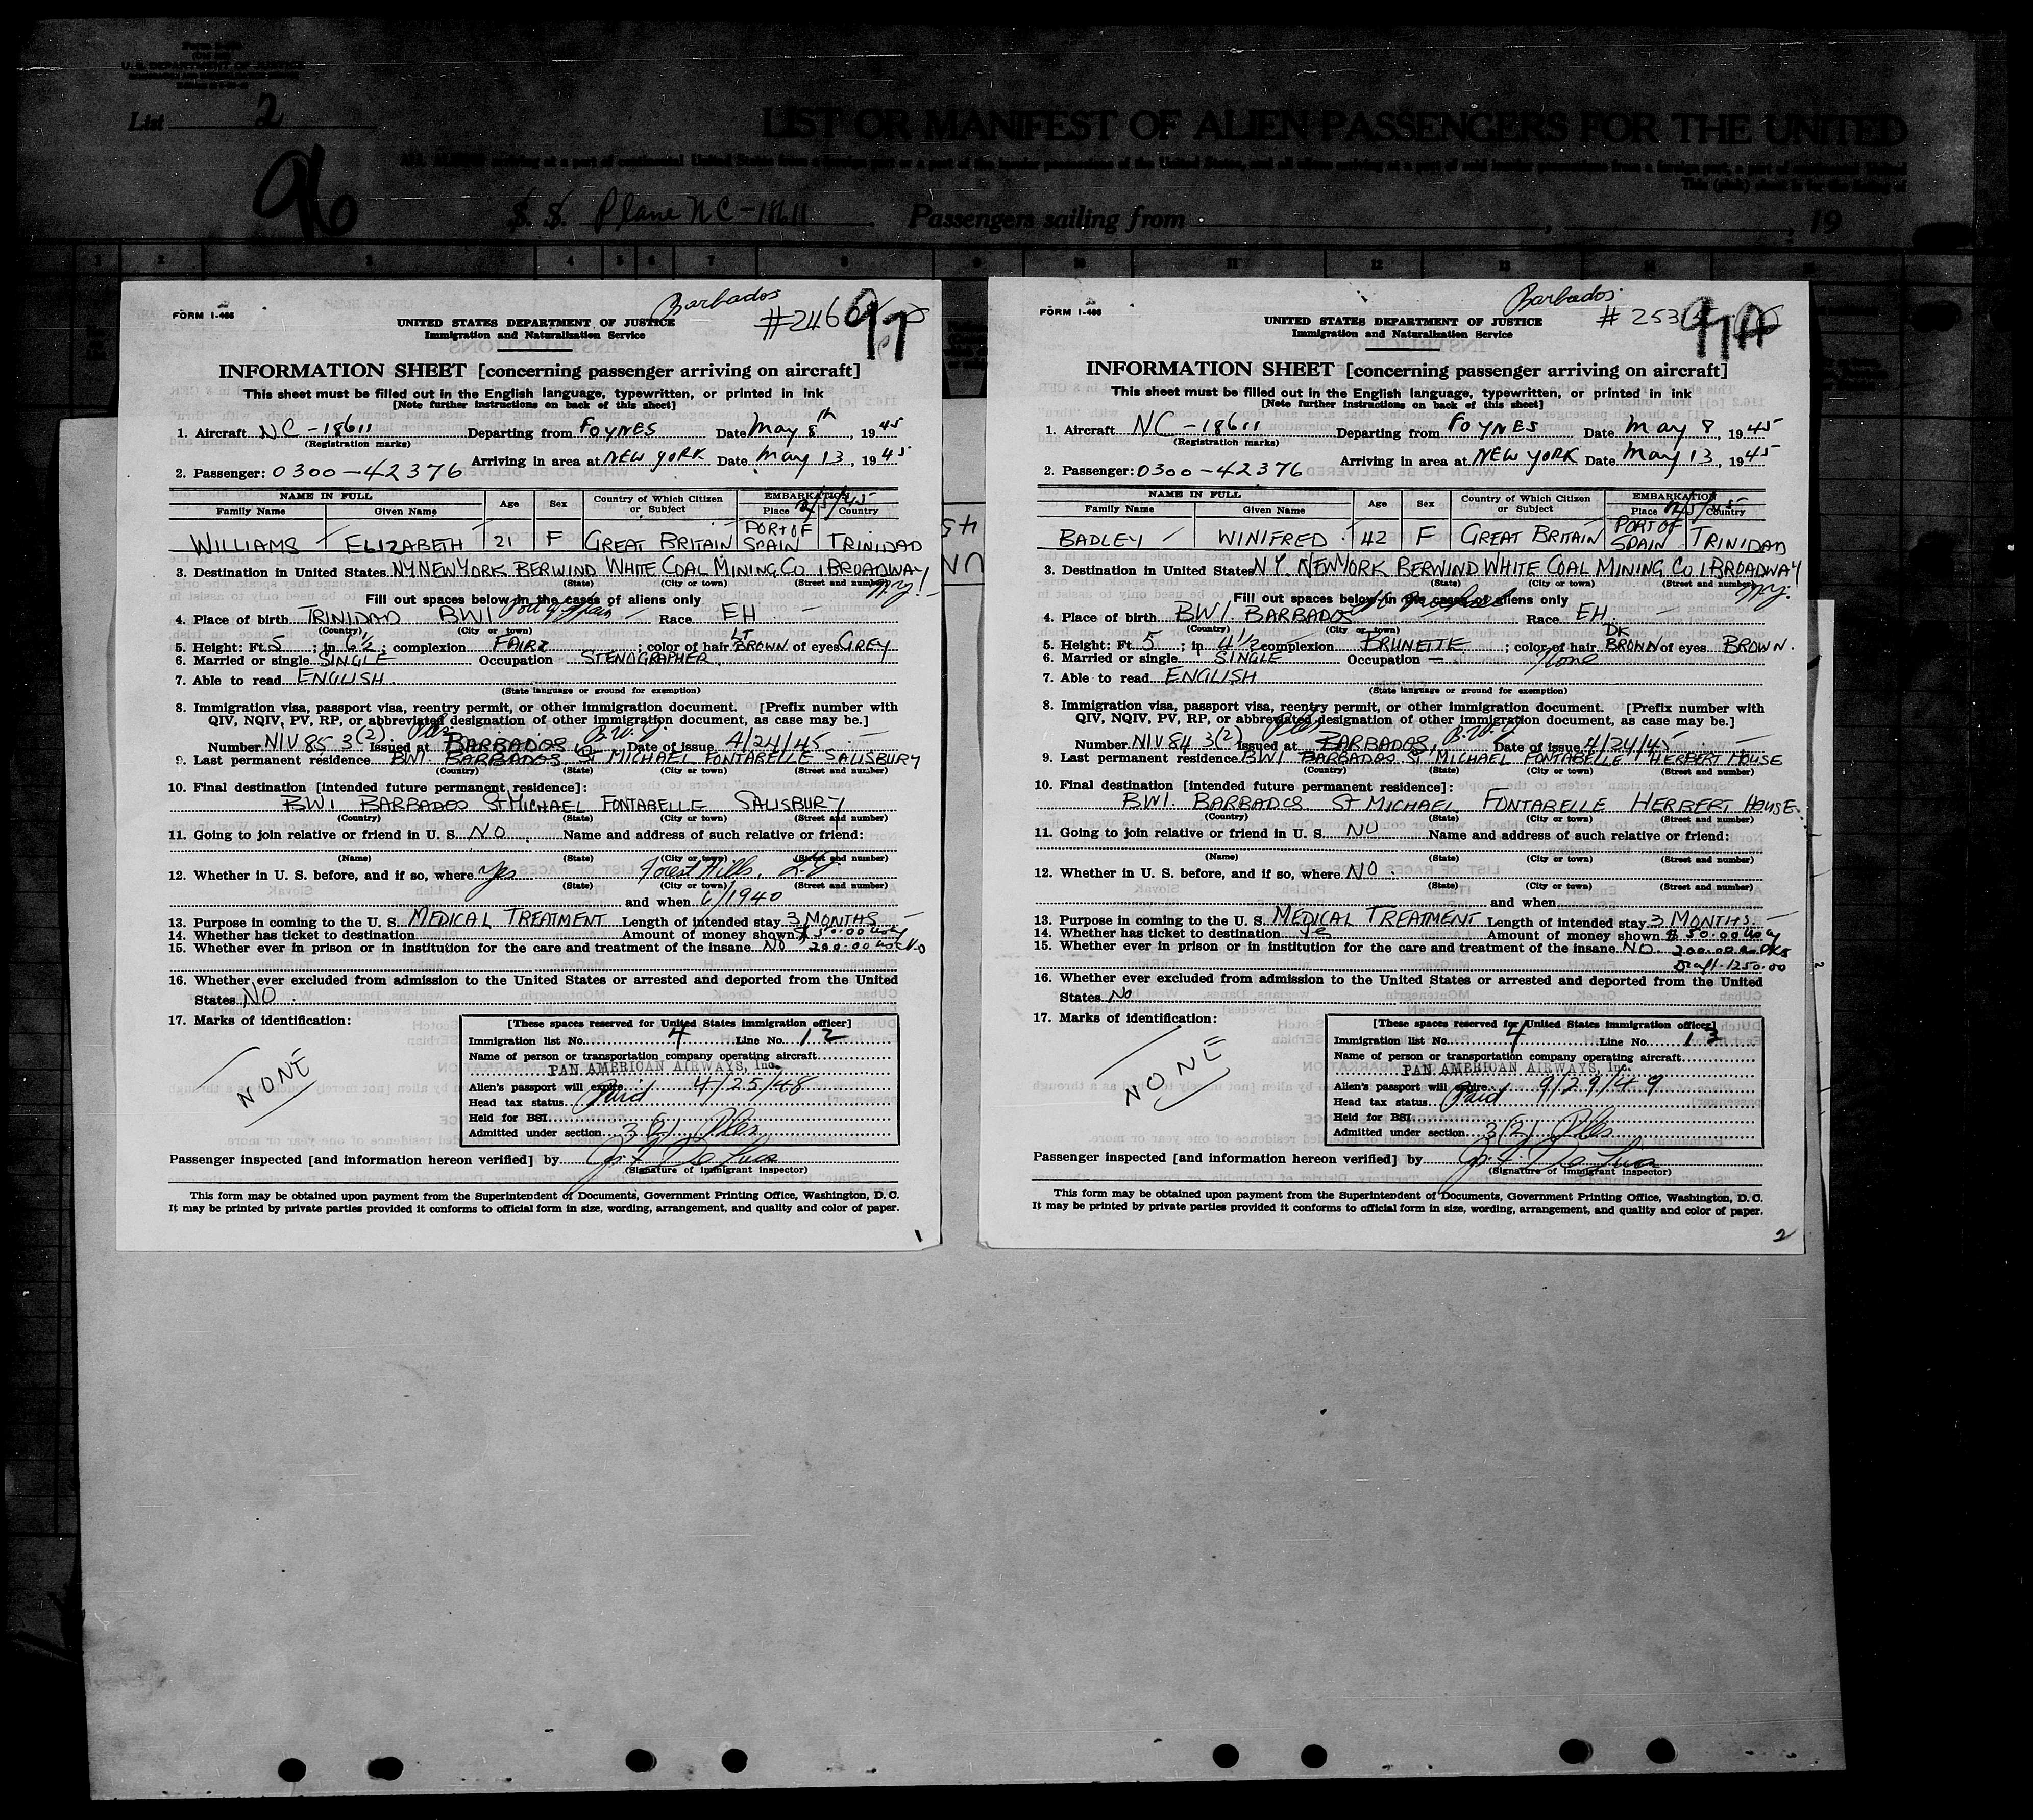 U.S. DEPARTMENT OF JUSTICE
List 2
LIST OR MANIFEST OF ALIEN PASSENGERS FOR THE UNITED
ALL ALIENS arriving at a port of continental United States from a foreign port or a port of the insular possessions of the United States, and all aliens arriving at a port of said insular possessions from a foreign port, a port of continental United
This (pink) sheet is for the listing of
96
S. S. Plane NC-18611 Passengers sailing from , , 19
1 2 3 4 5 6 7 8 9 10 11 12 13 14 15
FORM I-466
Barbados
#246 97
UNITED STATES DEPARTMENT OF JUSTICE
Immigration and Naturalization Service
INFORMATION SHEET [concerning passenger arriving on aircraft]
This sheet must be filled out in the English language, typewritten, or printed in ink
[Note further instructions on back of this sheet]
1. Aircraft NC-18611 Departing from FOYNES Date May 8th, 1945
(Registration marks)
Arriving in area at NEW YORK Date May 13, 1945
2. Passenger: 0300-42376
NAME IN FULL Age Sex Country of Which Citizen or Subject EMBARKATION
Family Name Given Name Place Country
12/5/45
WILLIAMS ELIZABETH 21 F GREAT BRITAIN PORT OF SPAIN TRINIDAD
3. Destination in United States NY NEW YORK BERWIND WHITE COAL MINING CO 1 BROADWAY
(State) (City or town) (Street and number)
N.Y.
Fill out spaces below in the cases of aliens only
4. Place of birth TRINIDAD BWI Port of Spain Race EH
(Country) (City or town)
5. Height: Ft. 5; in 6½; complexion FAIR; color of hair LT BROWN of eyes GREY
6. Married or single SINGLE Occupation STENOGRAPHER
7. Able to read ENGLISH
(State language or ground for exemption)
8. Immigration visa, passport visa, reentry permit, or other immigration document. [Prefix number with
QIV, NQIV, PV, RP, or abbreviated designation of other immigration document, as case may be.]
Number NIV 85 3(2) Issued at BARBADOS, B.W.I. Date of issue 4/24/45
9. Last permanent residence BWI. BARBADOS, ST MICHAEL FONTABELLE SALISBURY
(Country) (State) (City or town) (Street and number)
10. Final destination [intended future permanent residence]:
BWI. BARBADOS ST MICHAEL FONTABELLE SALISBURY
(Country) (State) (City or town) (Street and number)
11. Going to join relative or friend in U. S. NO Name and address of such relative or friend:
(Name) (State) (City or town) (Street and number)
12. Whether in U. S. before, and if so, where Yes Forest Hills, L.I.
(State) (City or town) (Street and number)
and when 6/1940
13. Purpose in coming to the U. S. MEDICAL TREATMENT Length of intended stay 3 MONTHS
14. Whether has ticket to destination Amount of money shown $50.00
15. Whether ever in prison or in institution for the care and treatment of the insane NO 200.00
16. Whether ever excluded from admission to the United States or arrested and deported from the United
States NO.
17. Marks of identification:
NONE
[These spaces reserved for United States immigration officer]
Immigration list No. 4 Line No. 12
Name of person or transportation company operating aircraft
PAN AMERICAN AIRWAYS, Inc.
Alien's passport will expire 4/25/48
Head tax status Paid
Held for BSI
Admitted under section 3(2)
Passenger inspected [and information hereon verified] by
(Signature of immigrant inspector)
This form may be obtained upon payment from the Superintendent of Documents, Government Printing Office, Washington, D. C.
It may be printed by private parties provided it conforms to official form in size, wording, arrangement, and quality and color of paper.
1
FORM I-466
Barbados
#253 97A
UNITED STATES DEPARTMENT OF JUSTICE
Immigration and Naturalization Service
INFORMATION SHEET [concerning passenger arriving on aircraft]
This sheet must be filled out in the English language, typewritten, or printed in ink
[Note further instructions on back of this sheet]
1. Aircraft NC-18611 Departing from FOYNES Date May 8, 1945
(Registration marks)
Arriving in area at NEW YORK Date May 13, 1945
2. Passenger: 0300-42376
NAME IN FULL Age Sex Country of Which Citizen or Subject EMBARKATION
Family Name Given Name Place Country
12/5/45
BADLEY WINIFRED 42 F GREAT BRITAIN PORT OF SPAIN TRINIDAD
3. Destination in United States N.Y. NEW YORK BERWIND WHITE COAL MINING CO 1 BROADWAY
(State) (City or town) (Street and number)
N.Y.
Fill out spaces below in the cases of aliens only
4. Place of birth BWI. BARBADOS St Michael Race EH.
(Country) (City or town)
5. Height: Ft. 5; in 4½ complexion BRUNETTE; color of hair DK BROWN of eyes BROWN.
6. Married or single SINGLE Occupation — None
7. Able to read ENGLISH
(State language or ground for exemption)
8. Immigration visa, passport visa, reentry permit, or other immigration document. [Prefix number with
QIV, NQIV, PV, RP, or abbreviated designation of other immigration document, as case may be.]
Number NIV 84 3(2) Issued at BARBADOS, B.W.I. Date of issue 4/24/45
9. Last permanent residence BWI BARBADOS ST MICHAEL FONTABELLE HERBERT HOUSE
(Country) (State) (City or town) (Street and number)
10. Final destination [intended future permanent residence]:
BWI. BARBADOS ST MICHAEL FONTABELLE HERBERT HOUSE.
(Country) (State) (City or town) (Street and number)
11. Going to join relative or friend in U. S. NO Name and address of such relative or friend:
(Name) (State) (City or town) (Street and number)
12. Whether in U. S. before, and if so, where NO.
(State) (City or town) (Street and number)
and when
13. Purpose in coming to the U. S. MEDICAL TREATMENT Length of intended stay 3 MONTHS.
14. Whether has ticket to destination Amount of money shown $50.00
15. Whether ever in prison or in institution for the care and treatment of the insane NO 200.00
Draft. 1250.00
16. Whether ever excluded from admission to the United States or arrested and deported from the United
States No
17. Marks of identification:
NONE
[These spaces reserved for United States immigration officer]
Immigration list No. 4 Line No. 13
Name of person or transportation company operating aircraft
PAN AMERICAN AIRWAYS, Inc.
Alien's passport will expire 9/29/49
Head tax status Paid
Held for BSI
Admitted under section 3(2)
Passenger inspected [and information hereon verified] by
(Signature of immigrant inspector)
This form may be obtained upon payment from the Superintendent of Documents, Government Printing Office, Washington, D. C.
It may be printed by private parties provided it conforms to official form in size, wording, arrangement, and quality and color of paper.
2